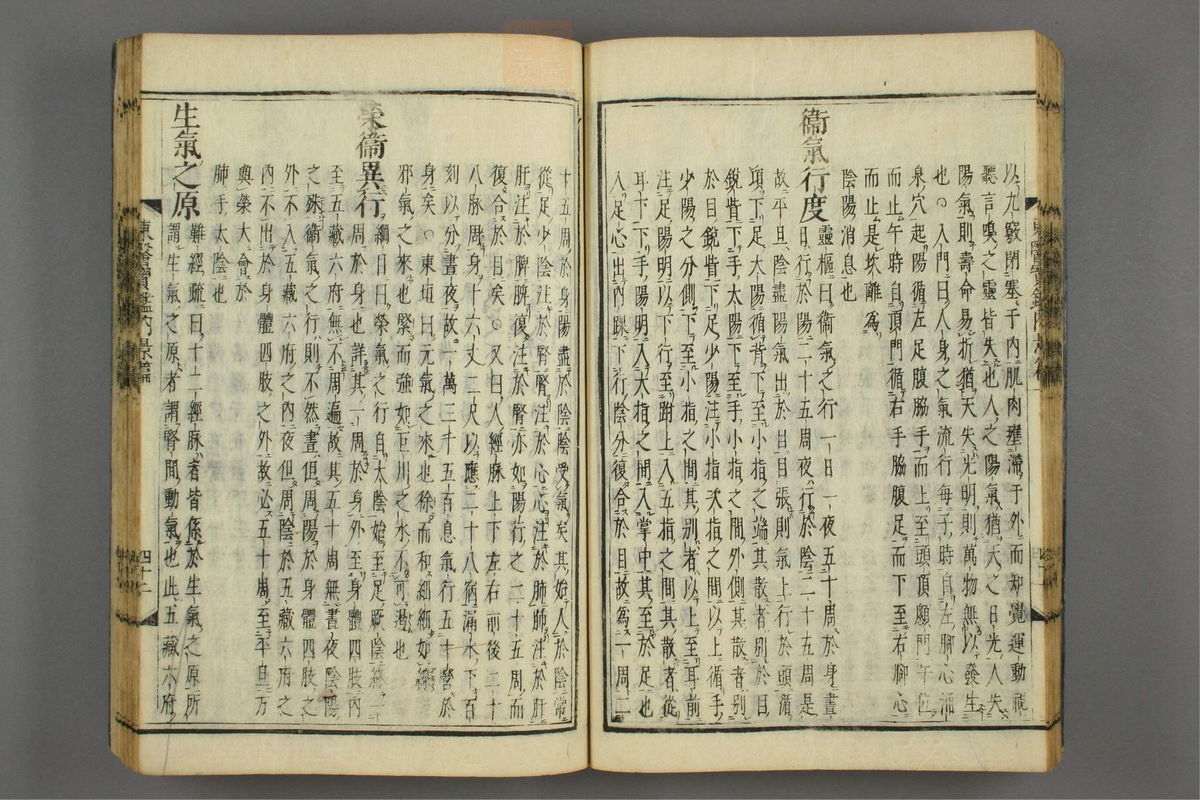 以九竅閉塞于內肌肉壅滯于外而知覺運動視
聽言嗅之靈皆失也人之陽氣猶天之日光人失
陽氣則壽命易折猶天失光明則萬物無以發生
也○入門曰人身之氣流行每子時自左脚心涌
泉穴起陽循左足腹脇手而上至頭頂顖門午位
而止午時自頂門循右手脇腹足而下至右脚心
而止是坎離爲
陰陽消息也
衞氣行度 靈樞曰衞氣之行一日一夜五十周於身晝
日行於陽二十五周夜行於陰二十五周是
故平旦陰盡陽氣出於目目張則氣上行於頭循
項下足太陽循背下至小指之端其散者別於目
銳眥下手太陽下至手小指之間外側其散者別
於目銳眥下足少陽注小指次指之間以上循手
少陽之分側下至小指之間其別者以上至耳前
注足陽明以下行至跗上入五指之間其散者從
耳下下手陽明入大指之間入掌中其至於足也
入足心出內踝下行陰分復合於目故爲一周二
十五周於身陽盡於陰陰受氣矣其始入於陰常
從足少陰注於腎腎注於心心注於肺肺注於肝
肝注於脾脾復注於腎亦如陽行之二十五周而
復合於目矣○又曰人經脉上下左右前後二十
八脉周身十六丈二尺以應二十八宿漏水下百
刻以分晝夜故一萬三千五百息氣行五十營於
身矣○東垣曰元氣之來也徐而和細細如線
邪氣之來也緊而強如巨川之水不可遏也
榮衞異行 綱目曰榮氣之行自太陰始至足厥陰終一
周於身也詳其一周於身外至身體四肢內
至五藏六府無不周遍故其五十周無晝夜陰陽
之殊衞氣之行則不然晝但周陽於身體四肢之
外不入五藏六府之內夜但周陰於五藏六府之
內不出於身體四肢之外故必五十周至平旦方
與榮大會於
肺手太陰也
生氣之原 難經疏曰十二經脉者皆係於生氣之原所
謂生氣之原者謂腎間動氣也此五藏六府
東醫寶鑑內景篇
四十二